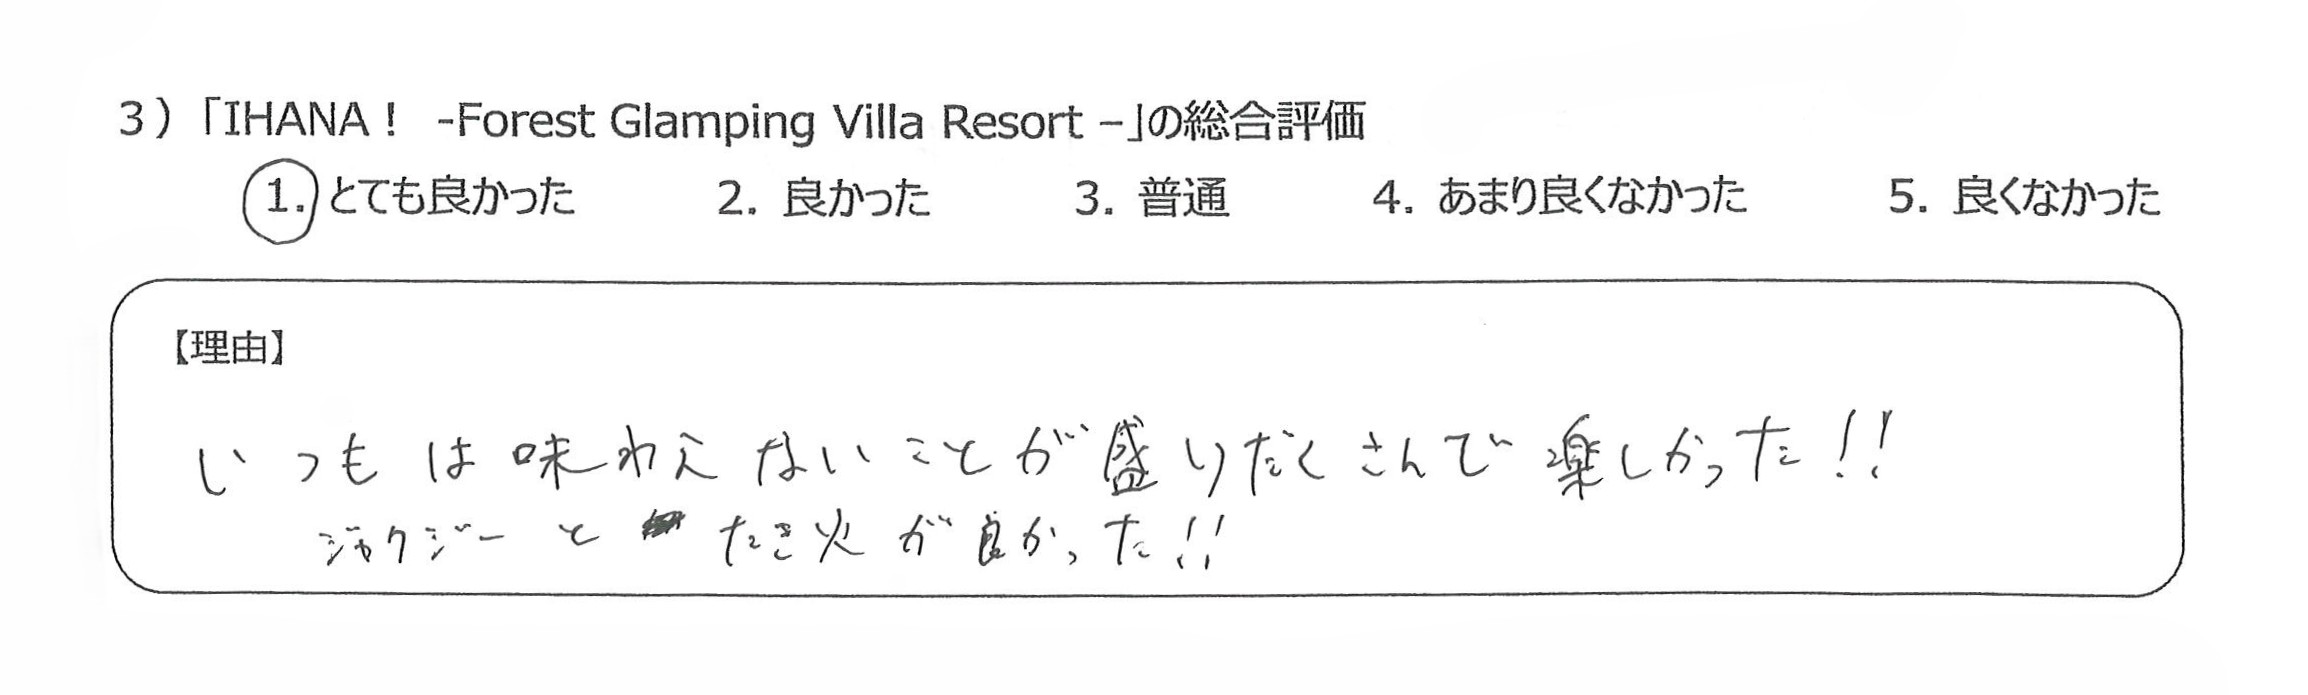 3）「IHANA！ -Forest Glamping Villa Resort –」の総合評価
1. とても良かった 2. 良かった 3. 普通 4. あまり良くなかった 5. 良くなかった
【理由】
いつもは味わえないことが盛りだくさんで楽しかった!!
ジャクジーと たき火が良かった!!